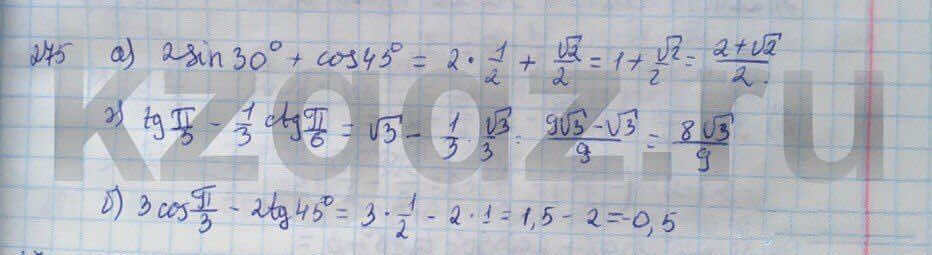 275 а) 2sin30° + cos45° = 2 · 1/2 + √2/2 = 1 + √2/2 = 2+√2/2.
г) tg π/3 − 1/3 ctg π/6 = √3 − 1/3 · √3/3 = 9√3−√3/9 = 8√3/9
б) 3cos π/3 − 2tg45° = 3 · 1/2 − 2 · 1 = 1,5 − 2 = −0,5
kzgdz.ru